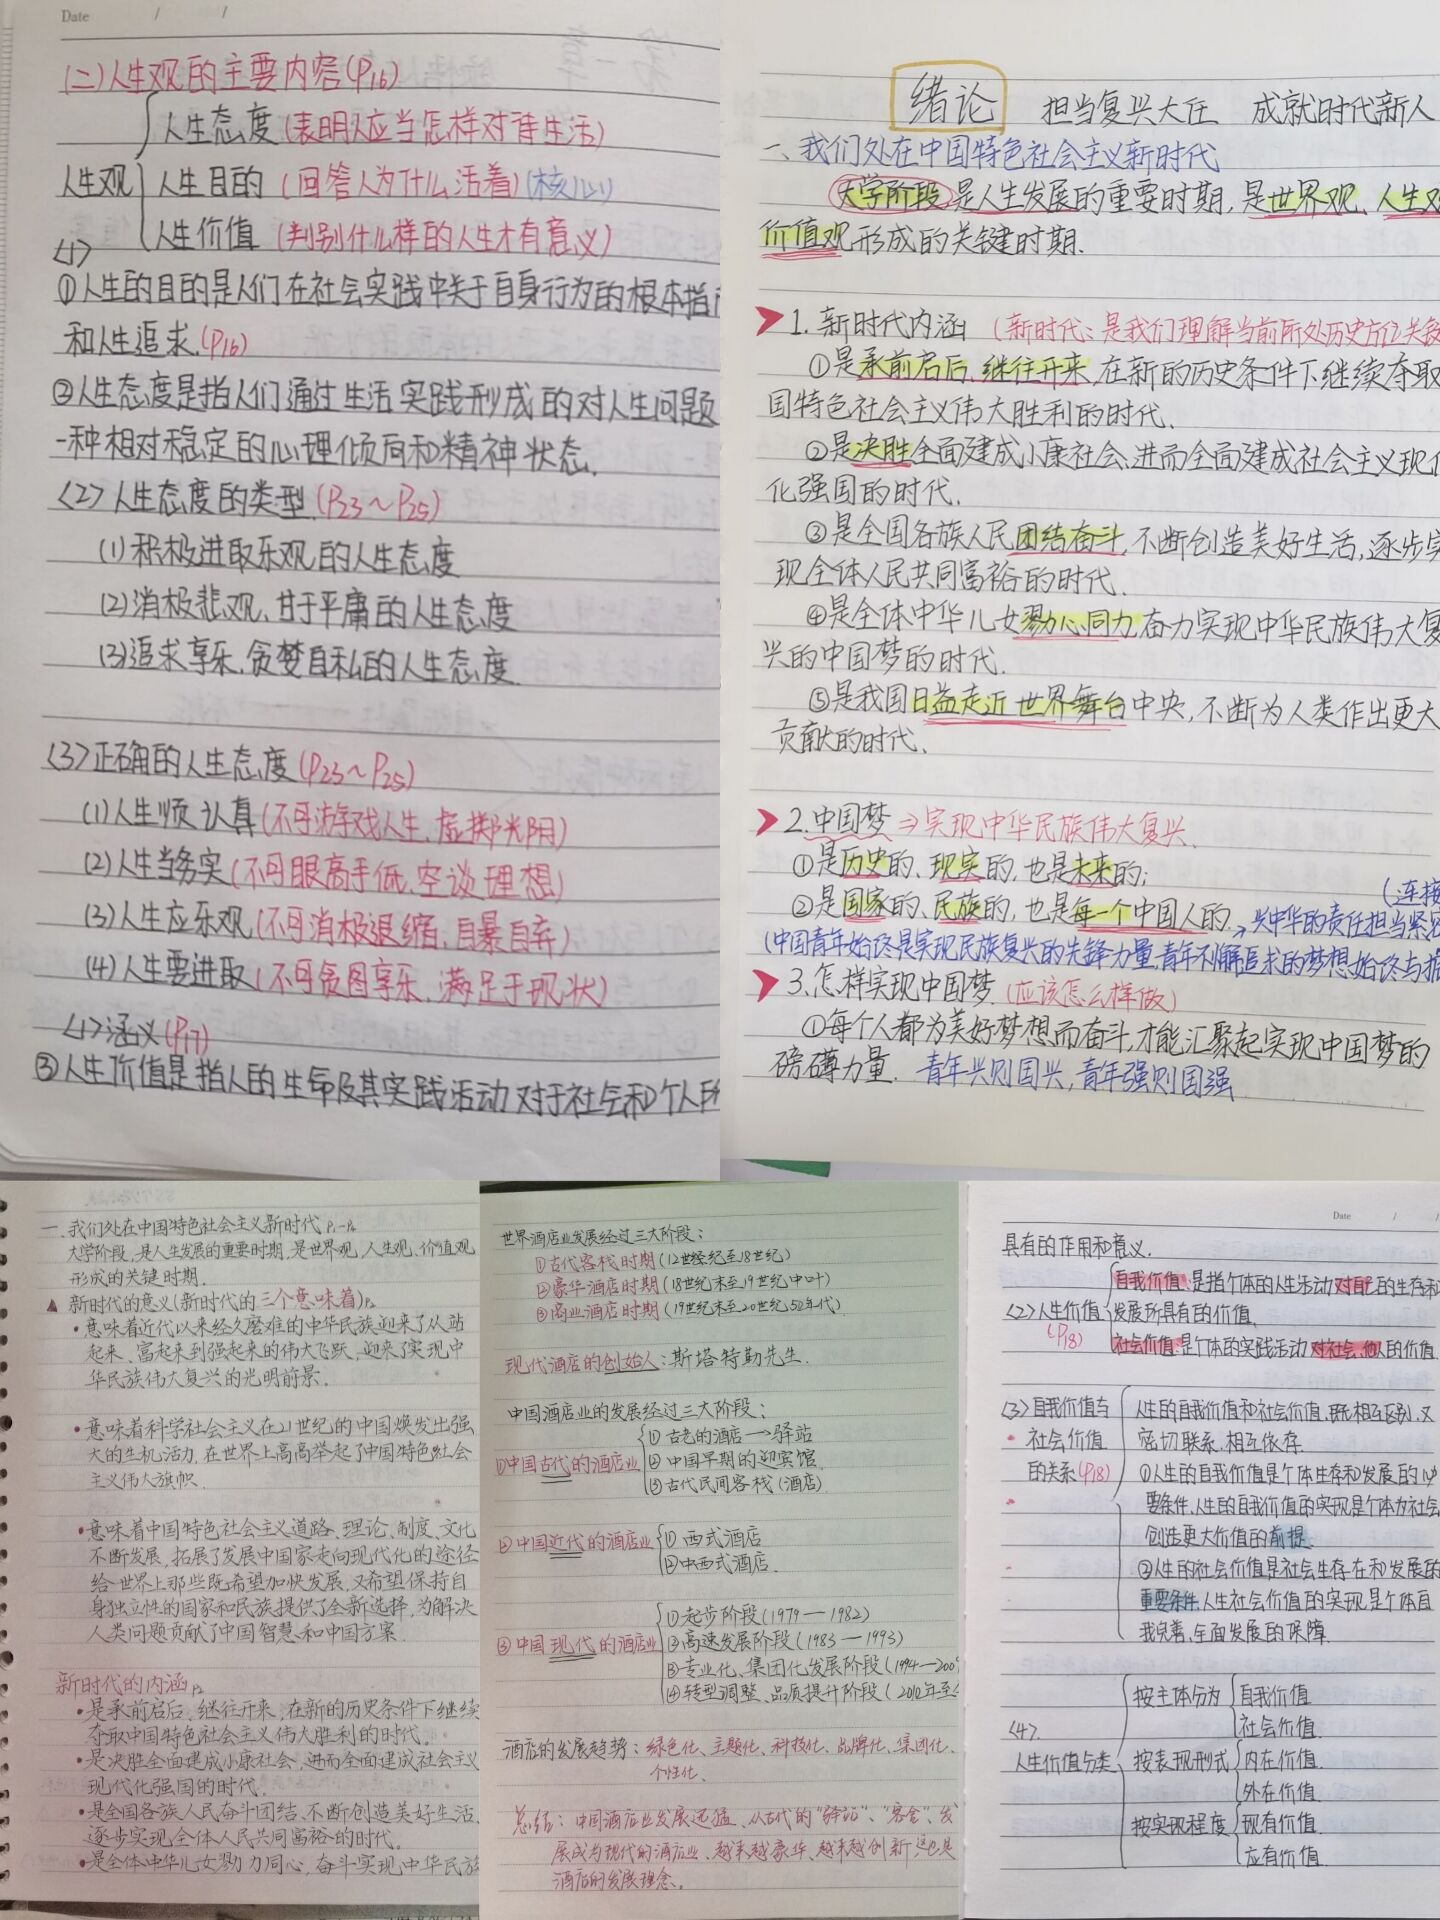 Date / /
(二)人生观的主要内容(P16)
人生态度(表明人应当怎样对待生活)
人生观 人生目的(回答人为什么活着)(核心)
人生价值(判别什么样的人生才有意义)
<1>
①人生的目的是人们在社会实践中关于自身行为的根本指
和人生追求.(P16)
②人生态度是指人们通过生活实践形成的对人生问题
一种相对稳定的心理倾向和精神状态.
<2>人生态度的类型.(P23~P25)
(1)积极进取乐观的人生态度
(2)消极悲观,甘于平庸的人生态度
(3)追求享乐,贪婪自私的人生态度.
<3>正确的人生态度(P23~P25)
(1)人生须认真(不可游戏人生,虚掷光阴)
(2)人生当务实(不可眼高手低,空谈理想)
(3)人生应乐观(不可消极退缩,自暴自弃)
(4)人生要进取(不可贪图享乐,满足于现状)
<1>涵义(P17)
③人生价值是指人的生命及其实践活动对于社会和个人
绪论 担当复兴大任 成就时代新人
一、我们处在中国特色社会主义新时代
大学阶段是人生发展的重要时期,是世界观、人生观
价值观形成的关键时期.
1.新时代内涵(新时代:是我们理解当前所处历史方位关
①是承前启后、继往开来,在新的历史条件下继续夺取
国特色社会主义伟大胜利的时代.
②是决胜全面建成小康社会、进而全面建成社会主义现
化强国的时代.
③是全国各族人民团结奋斗,不断创造美好生活,逐步实
现全体人民共同富裕的时代.
④是全体中华儿女勠心同力,奋力实现中华民族伟大复
兴的中国梦的时代.
⑤是我国日益走近世界舞台中央,不断为人类作出更大
贡献的时代.
2.中国梦⇒实现中华民族伟大复兴.
①是历史的、现实的,也是未来的;
(连接
②是国家的、民族的,也是每一个中国人的.→兴中华的责任担当紧
(中国青年始终是实现民族复兴的先锋力量,青年不懈追求的梦想始终与
3.怎样实现中国梦.(应该怎么样做)
①每个人都为美好梦想而奋斗,才能汇聚起实现中国梦的
磅礴力量. 青年兴则国兴,青年强则国强
一、我们处在中国特色社会主义新时代
大学阶段,是人生发展的重要时期,是世界观,人生观、价值观
形成的关键时期.
▲新时代的意义(新时代的三个意味着)P2
•意味着近代以来经久磨难的中华民族迎来了从站
起来、富起来到强起来的伟大飞跃,迎来了实现中
华民族伟大复兴的光明前景.
•意味着科学社会主义在21世纪的中国焕发出强
大的生机活力,在世界上高高举起了中国特色社会
主义伟大旗帜.
•意味着中国特色社会主义道路、理论、制度、文化
不断发展,拓展了发展中国家走向现代化的途径
给世界上那些既希望加快发展,又希望保持自
身独立性的国家和民族提供了全新选择,为解决
人类问题贡献了中国智慧和中国方案.
新时代的内涵P2
•是承前启后、继往开来,在新的历史条件下继续
夺取中国特色社会主义伟大胜利的时代.
•是决胜全面建成小康社会,进而全面建成社会主义
现代化强国的时代.
•是全国各族人民奋斗团结、不断创造美好生活、
逐步实现全体人民共同富裕的时代.
•是全体中华儿女勠力同心,奋斗实现中华民族
世界酒店业发展经过三大阶段:
①古代客栈时期(12世纪至18世纪)
②豪华酒店时期(18世纪末至19世纪中叶)
③商业酒店时期(19世纪末至20世纪50年代)
现代酒店的创始人:斯塔特勤先生.
中国酒店业的发展经过三大阶段:
①古老的酒店→驿站
①中国古代的酒店业 ②中国早期的迎宾馆.
③古代民间客栈(酒店)
②中国近代的酒店业 ①西式酒店
②中西式酒店.
①起步阶段(1979—1982)
③中国现代的酒店业 ②高速发展阶段(1983—1993)
③专业化、集团化发展阶段(1994—200
④转型调整、品质提升阶段(2010年至
酒店的发展趋势:绿色化、主题化、科技化、品牌化、集团化、
个性化.
总结:中国酒店业发展迅猛、从古代的"驿站"、"客舍"、发
展成为现代的酒店业、越来越豪华、越来越创新,这也是
酒店的发展理念。
Date / /
具有的作用和意义.
自我价值:是指个体的人生活动对自己的生存和
<2>人生价值 发展所具有的价值.
(P18) 社会价值:是个体的实践活动对社会、他人的价值
<3>自我价值与 人生的自我价值和社会价值,既相互区别,又
社会价值 密切联系,相互依存.
的关系(P18) ①人生的自我价值是个体生存和发展的必
要条件,人生的自我价值的实现是个体为社会
创造更大价值的前提.
②人生的社会价值是社会生存在和发展的
重要条件,人生社会价值的实现是个体自
我完善,全面发展的保障.
按主体分为 自我价值
<4>. 社会价值
人生价值分类 按表现形式 内在价值.
外在价值
按实现程度 现有价值
应有价值.